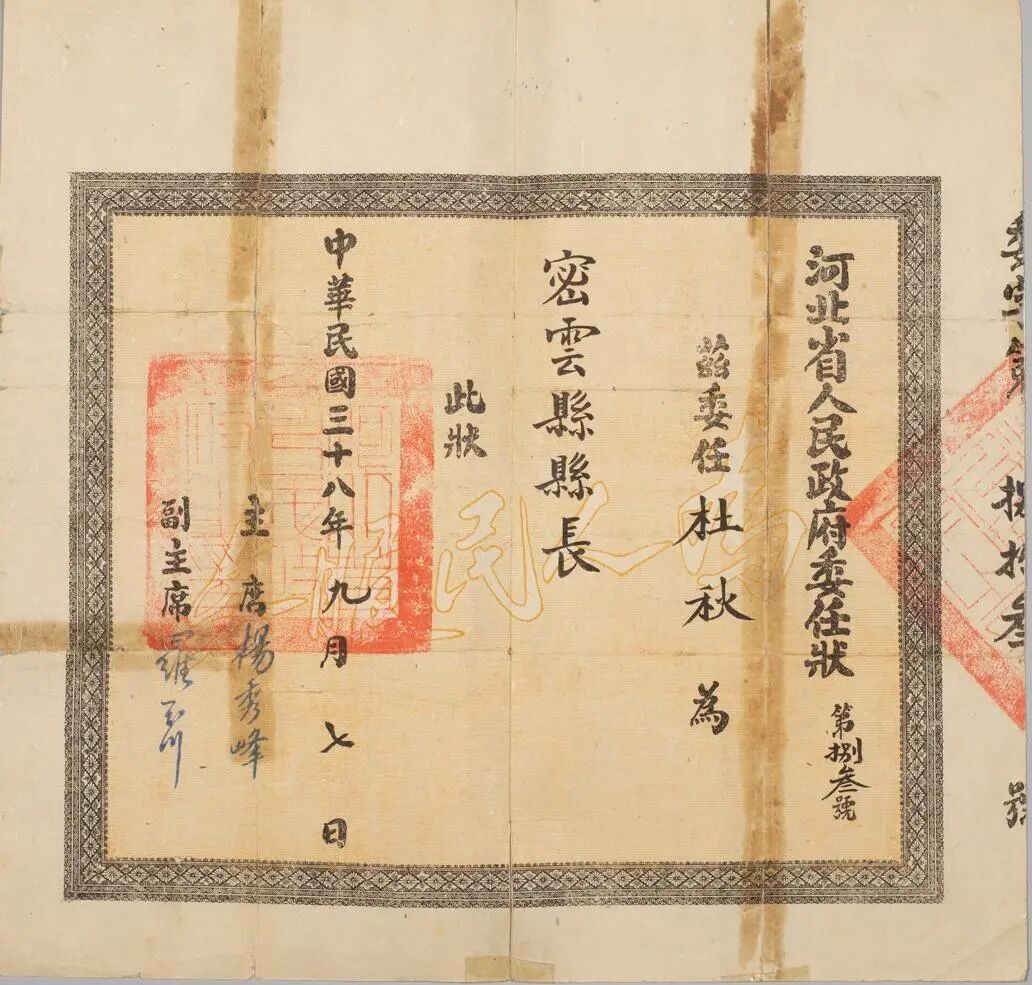 委字第捌拾叁號
河北省人民政府委任狀
第捌叁號
茲委任 杜秋 為
密雲縣縣長
此狀
中華民國三十八年九月七日
主席 楊秀峰
副主席 羅玉川